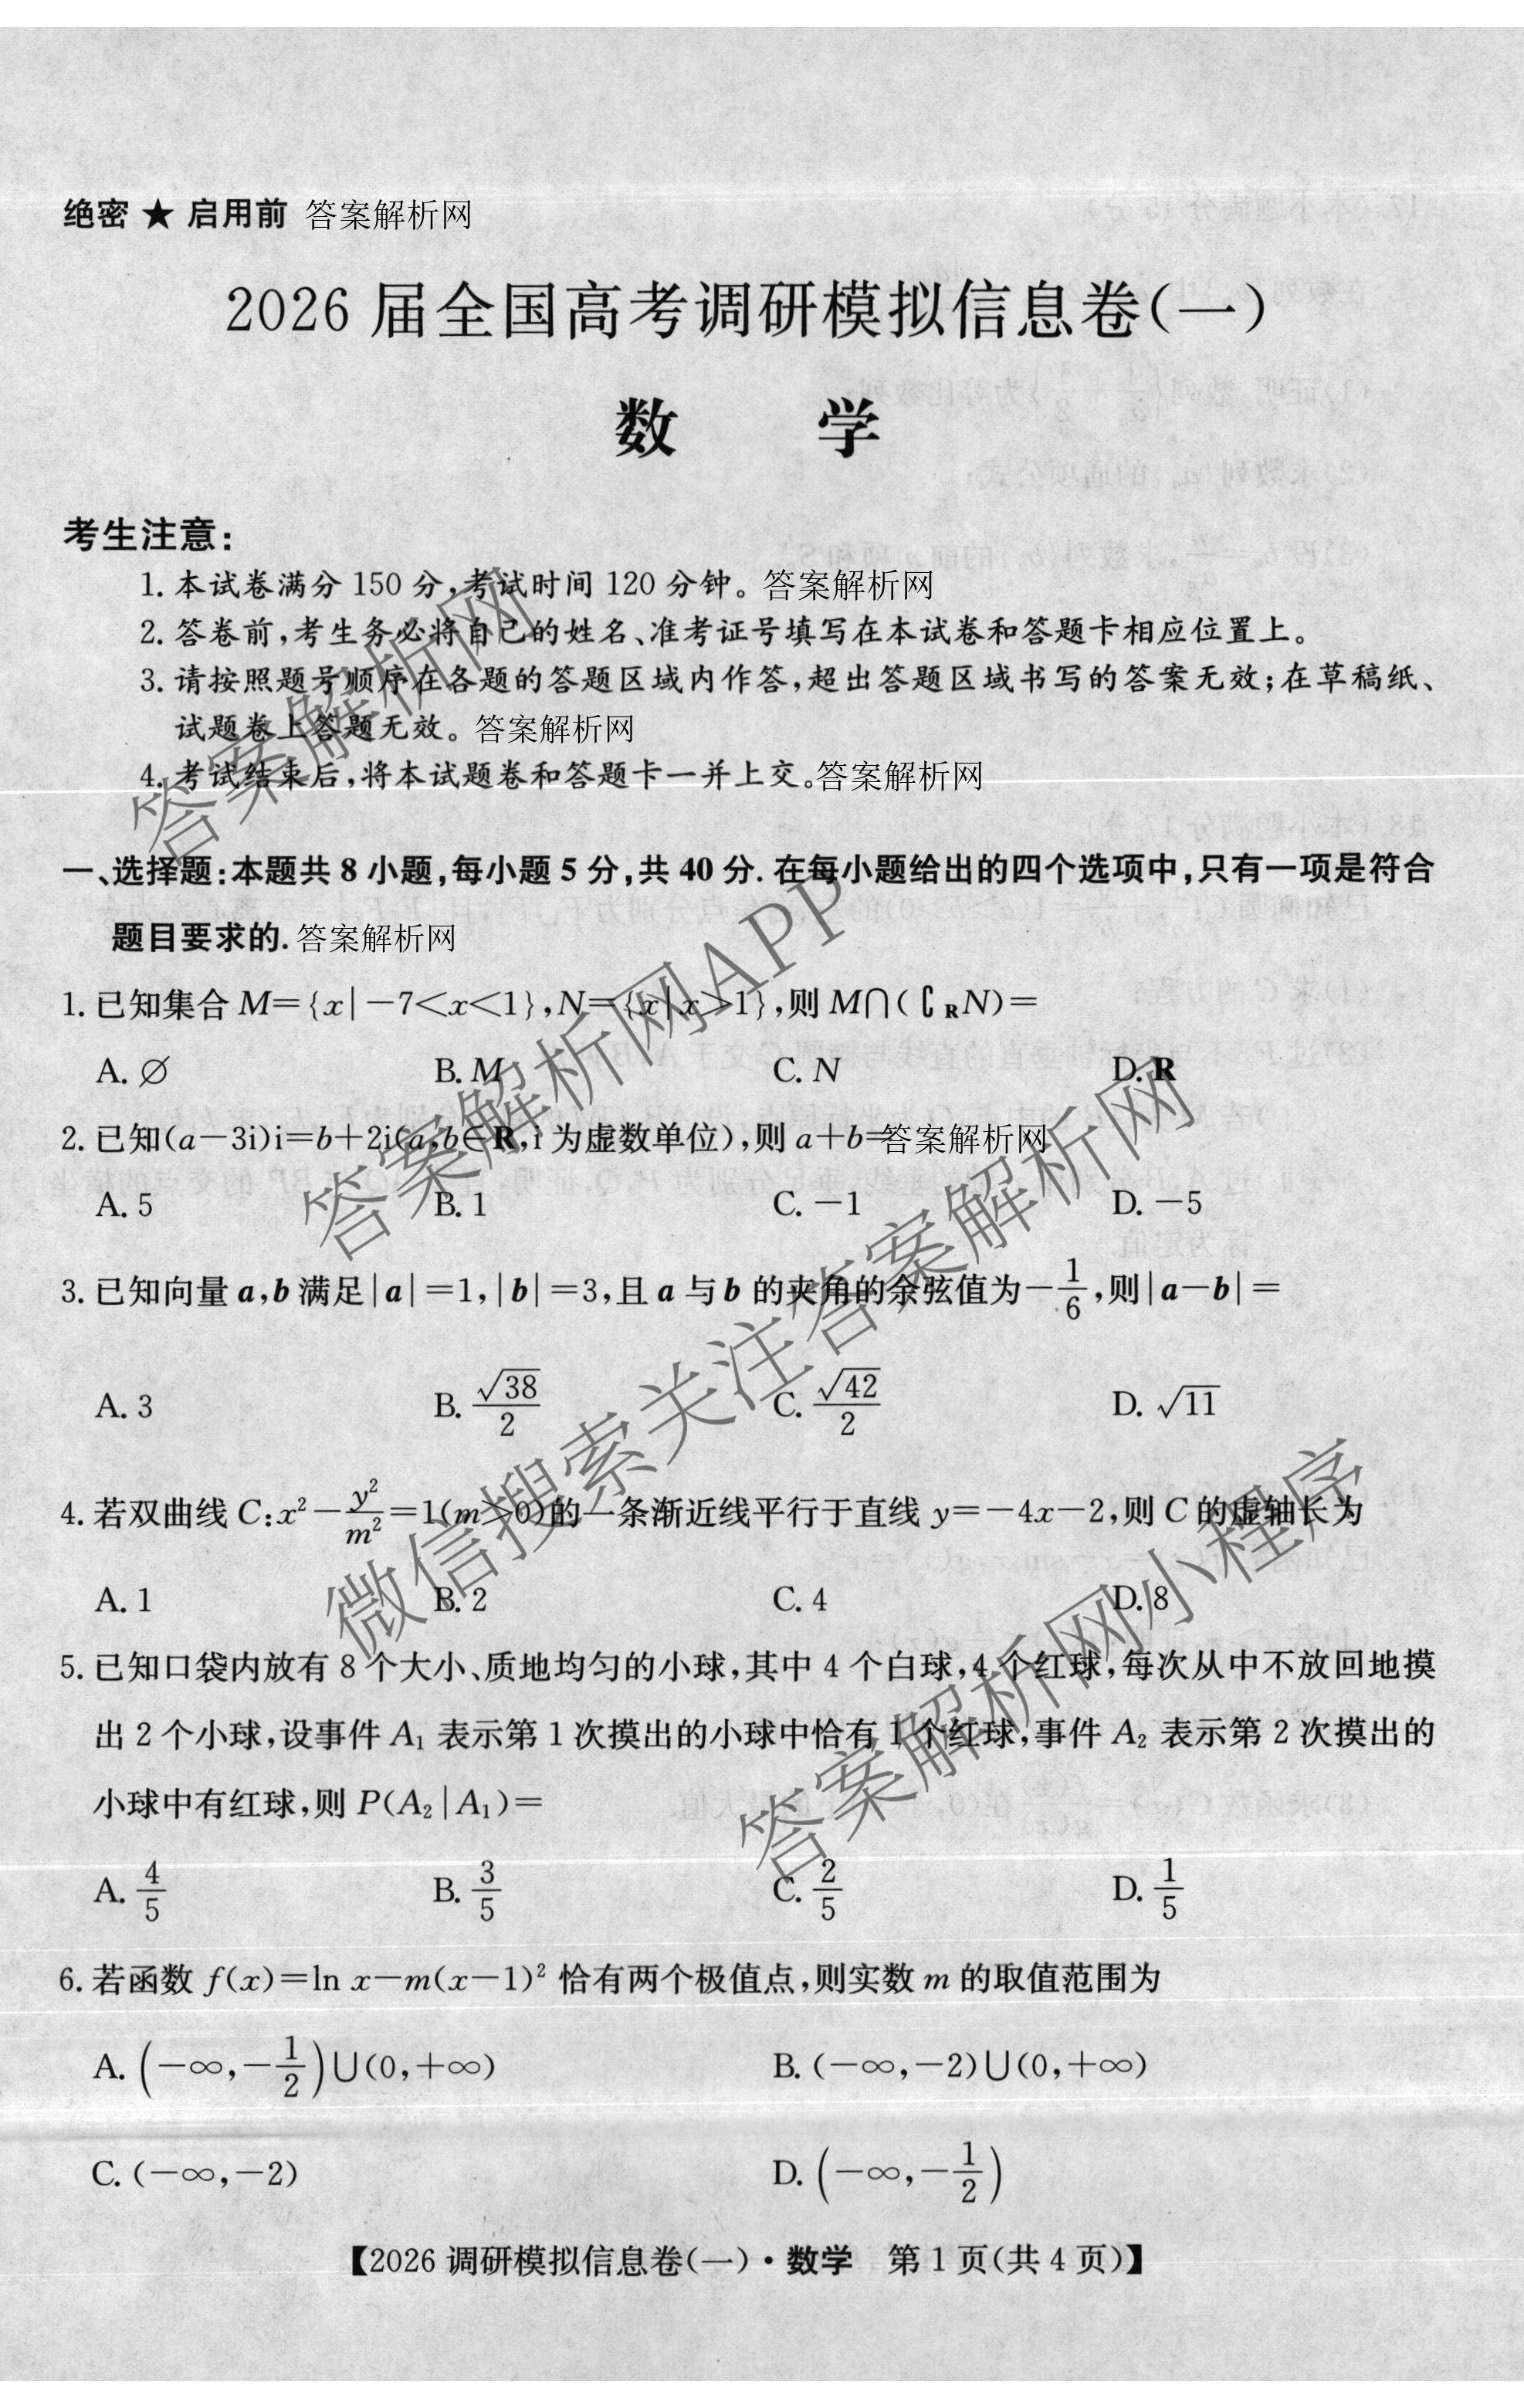 绝密 ★ 启用前 答案解析网
2026 届全国高考调研模拟信息卷(一)
数 学
考生注意:
1. 本试卷满分 150 分,考试时间 120 分钟。 答案解析网
2. 答卷前,考生务必将自己的姓名、准考证号填写在本试卷和答题卡相应位置上。
3. 请按照题号顺序在各题的答题区域内作答,超出答题区域书写的答案无效;在草稿纸、
试题卷上答题无效。 答案解析网
4. 考试结束后,将本试题卷和答题卡一并上交。答案解析网
一、选择题:本题共 8 小题,每小题 5 分,共 40 分. 在每小题给出的四个选项中,只有一项是符合
题目要求的. 答案解析网
1. 已知集合 M={x|-7<x<1},N={x|x>1},则 M∩(∁RN)=
A. ∅ B. M C. N D. R
2. 已知(a-3i)i=b+2i(a,b∈R,i 为虚数单位),则 a+b=答案解析网
A. 5 B. 1 C. -1 D. -5
3. 已知向量 a,b 满足|a|=1,|b|=3,且 a 与 b 的夹角的余弦值为-1/6,则|a-b|=
A. 3 B. √38/2 C. √42/2 D. √11
4. 若双曲线 C:x²-y²/m²=1(m>0)的一条渐近线平行于直线 y=-4x-2,则 C 的虚轴长为
A. 1 B. 2 C. 4 D. 8
5. 已知口袋内放有 8 个大小、质地均匀的小球,其中 4 个白球,4 个红球,每次从中不放回地摸
出 2 个小球,设事件 A₁ 表示第 1 次摸出的小球中恰有 1 个红球,事件 A₂ 表示第 2 次摸出的
小球中有红球,则 P(A₂|A₁)=
A. 4/5 B. 3/5 C. 2/5 D. 1/5
6. 若函数 f(x)=ln x-m(x-1)² 恰有两个极值点,则实数 m 的取值范围为
A. (-∞,-1/2)∪(0,+∞) B. (-∞,-2)∪(0,+∞)
C. (-∞,-2) D. (-∞,-1/2)
【2026 调研模拟信息卷(一)·数学 第 1 页(共 4 页)】
答案解析网
答案解析网APP
微信搜索关注答案解析网
答案解析网小程序